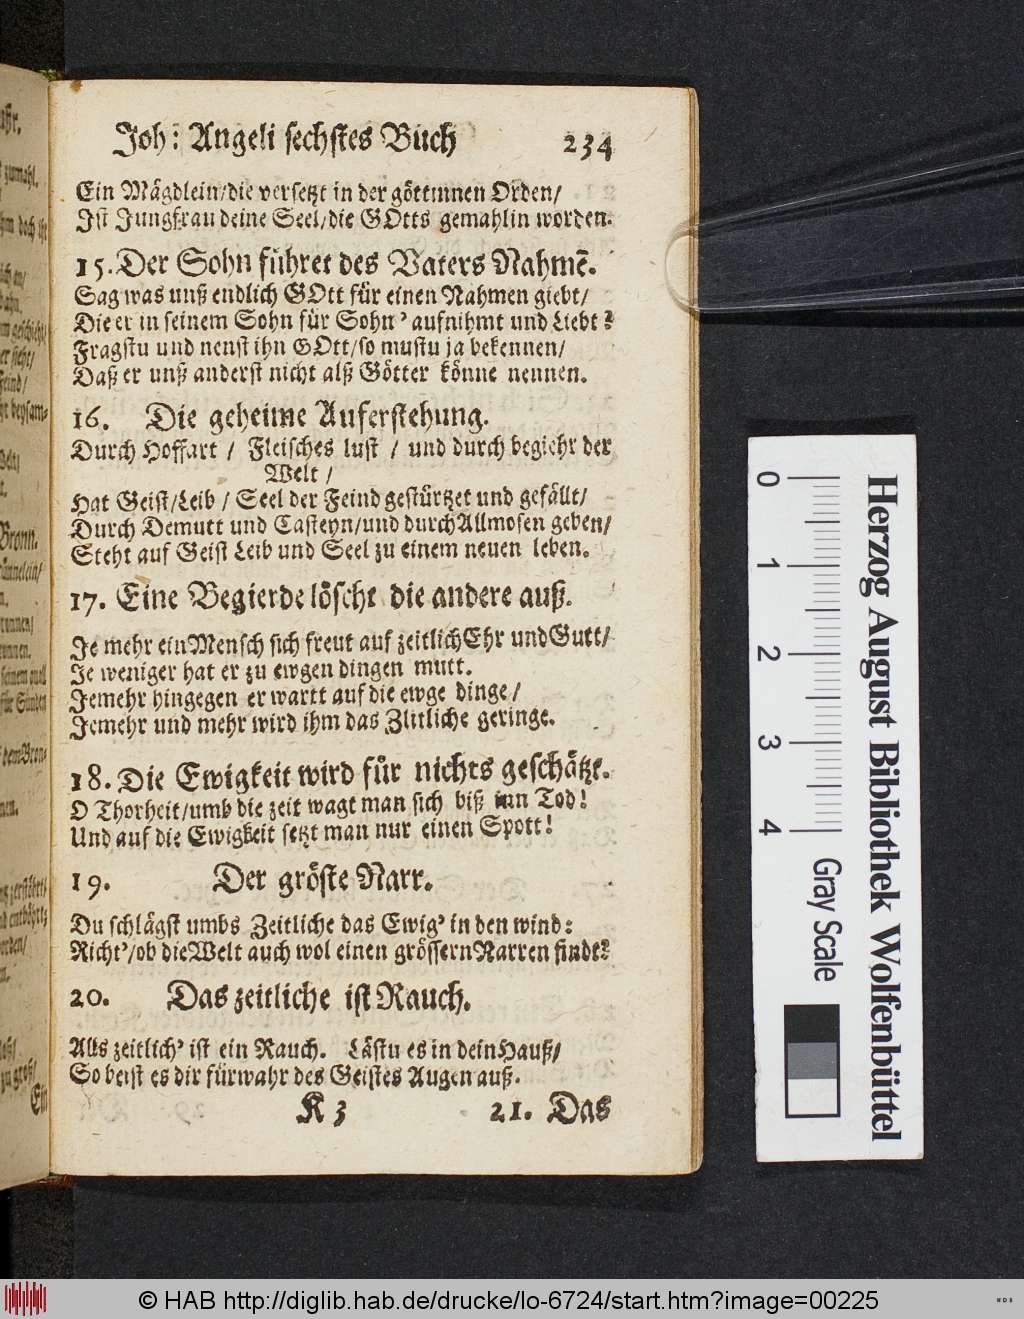 Joh: Angeli sechstes Buch 234
Ein Mägdlein/die versetzt in der göttinnen Orden/
Ist Jungfrau deine Seel/die GOtts gemahlin worden.
15. Der Sohn führet des Vaters Nahmẽ.
Sag was unß endlich GOtt für einen Nahmen giebt/
Die er in seinem Sohn für Sohn' aufnihmt und Liebt?
Fragstu und nenst ihn GOtt/so mustu ja bekennen/
Daß er unß anderst nicht alß Götter könne nennen.
16. Die geheime Auferstehung.
Durch Hoffart / Fleisches lust / und durch begiehr der
Welt /
Hat Geist/Leib / Seel der Feind gestürtzet und gefällt/
Durch Demutt und Casteyn/und durch Allmosen geben/
Steht auf Geist Leib und Seel zu einem neuen leben.
17. Eine Begierde löscht die andere auß.
Je mehr ein Mensch sich freut auf zeitlich Ehr und Gutt/
Je weniger hat er zu ewgen dingen mutt.
Jemehr hingegen er wartt auf die ewge dinge/
Jemehr und mehr wird ihm das Zlitliche geringe.
18. Die Ewigkeit wird für nichts geschätzt.
O Thorheit/umb die zeit wagt man sich biß inn Tod!
Und auf die Ewigkeit setzt man nur einen Spott!
19. Der gröste Narr.
Du schlägst umbs Zeitliche das Ewig' in den wind:
Richt'/ob die Welt auch wol einen grössern Narren findt?
20. Das zeitliche ist Rauch.
Alls zeitlich' ist ein Rauch. Lästu es in dein Hauß/
So beist es dir fürwahr des Geistes Augen auß.
K 3 21. Das
0 1 2 3 4
Gray Scale
Herzog August Bibliothek Wolfenbüttel
© HAB http://diglib.hab.de/drucke/lo-6724/start.htm?image=00225